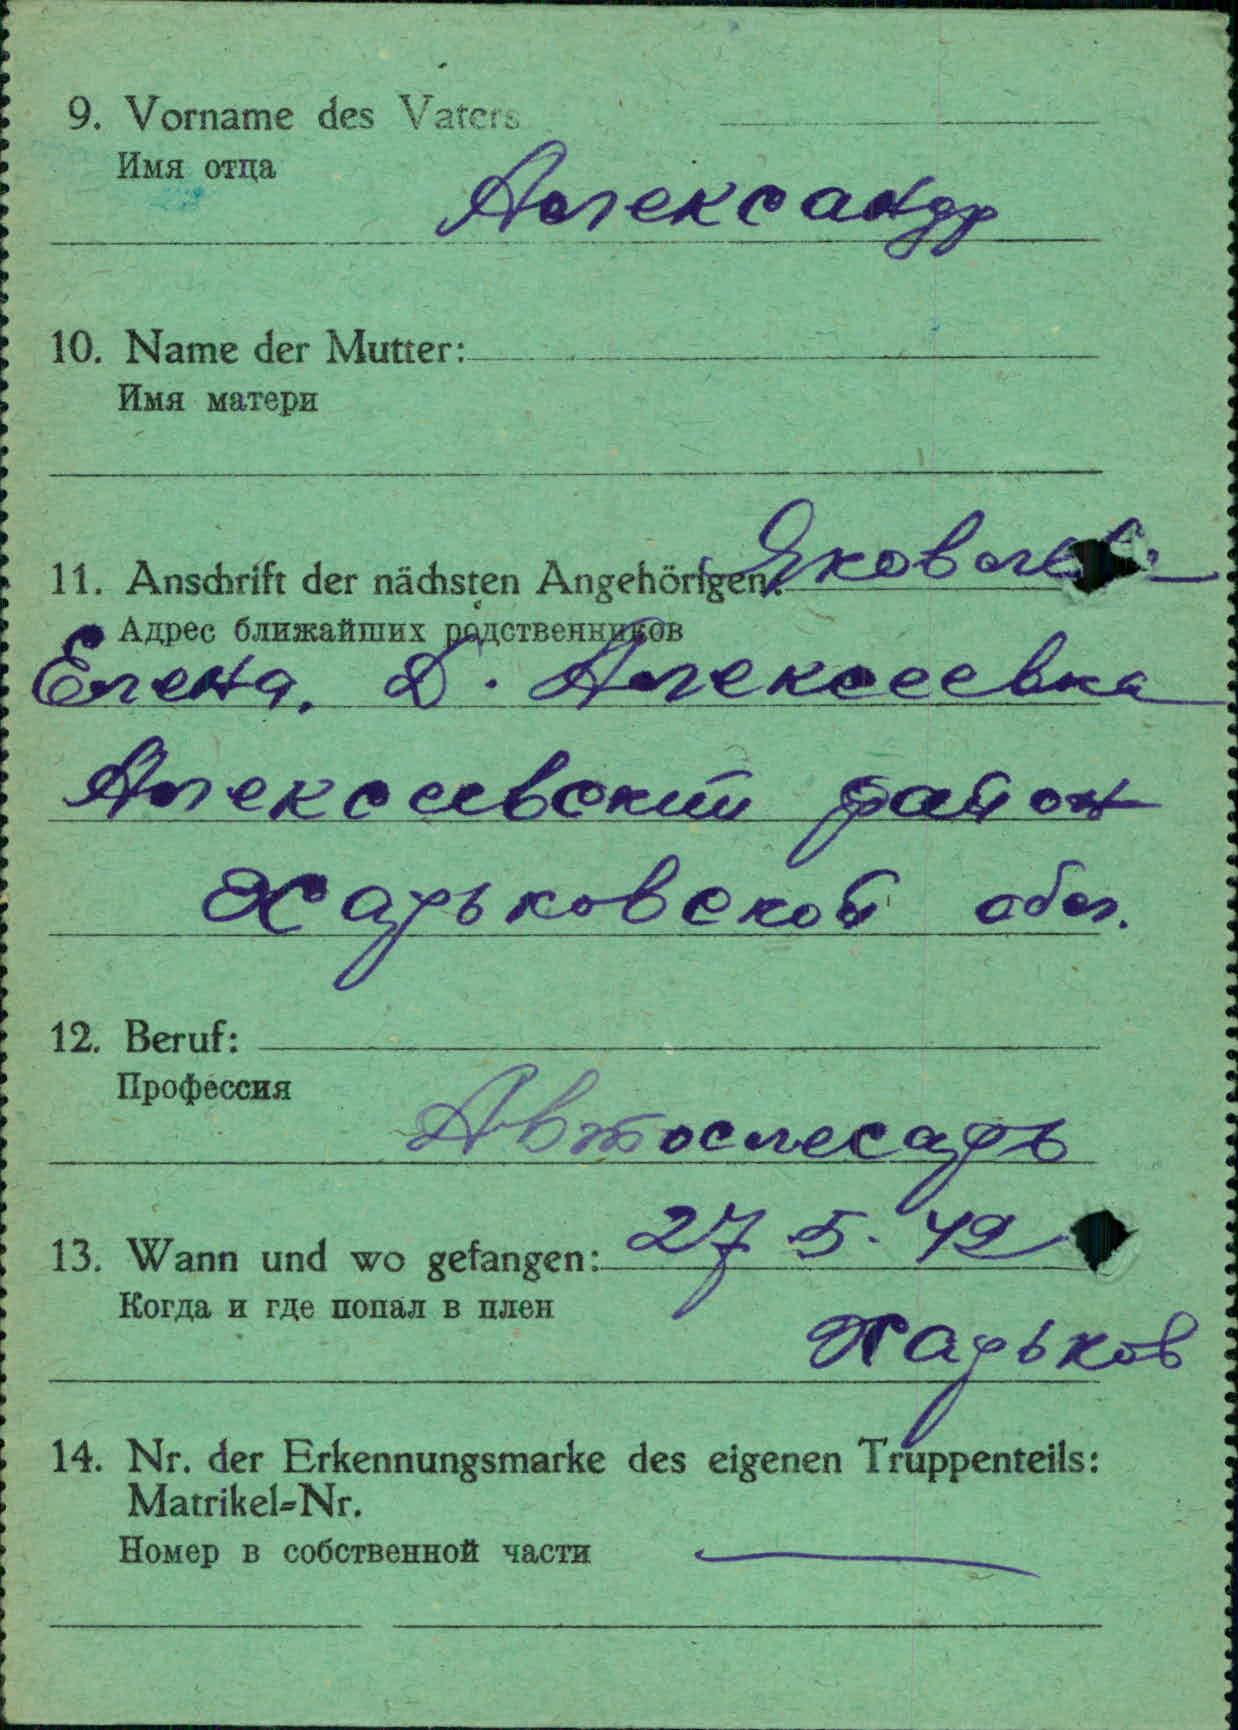 9. Vorname des Vaters
Имя отца
Александр
10. Name der Mutter:
Имя матери
11. Anschrift der nächsten Angehörigen:
Адрес ближайших родственников
Елена, Д. Алексеевка
Алексеевский район
Харьковской обл.
12. Beruf:
Профессия
Автослесарь
13. Wann und wo gefangen: 27 5. 42
Когда и где попал в плен
Харьков
14. Nr. der Erkennungsmarke des eigenen Truppenteils:
Matrikel-Nr.
Номер в собственной части